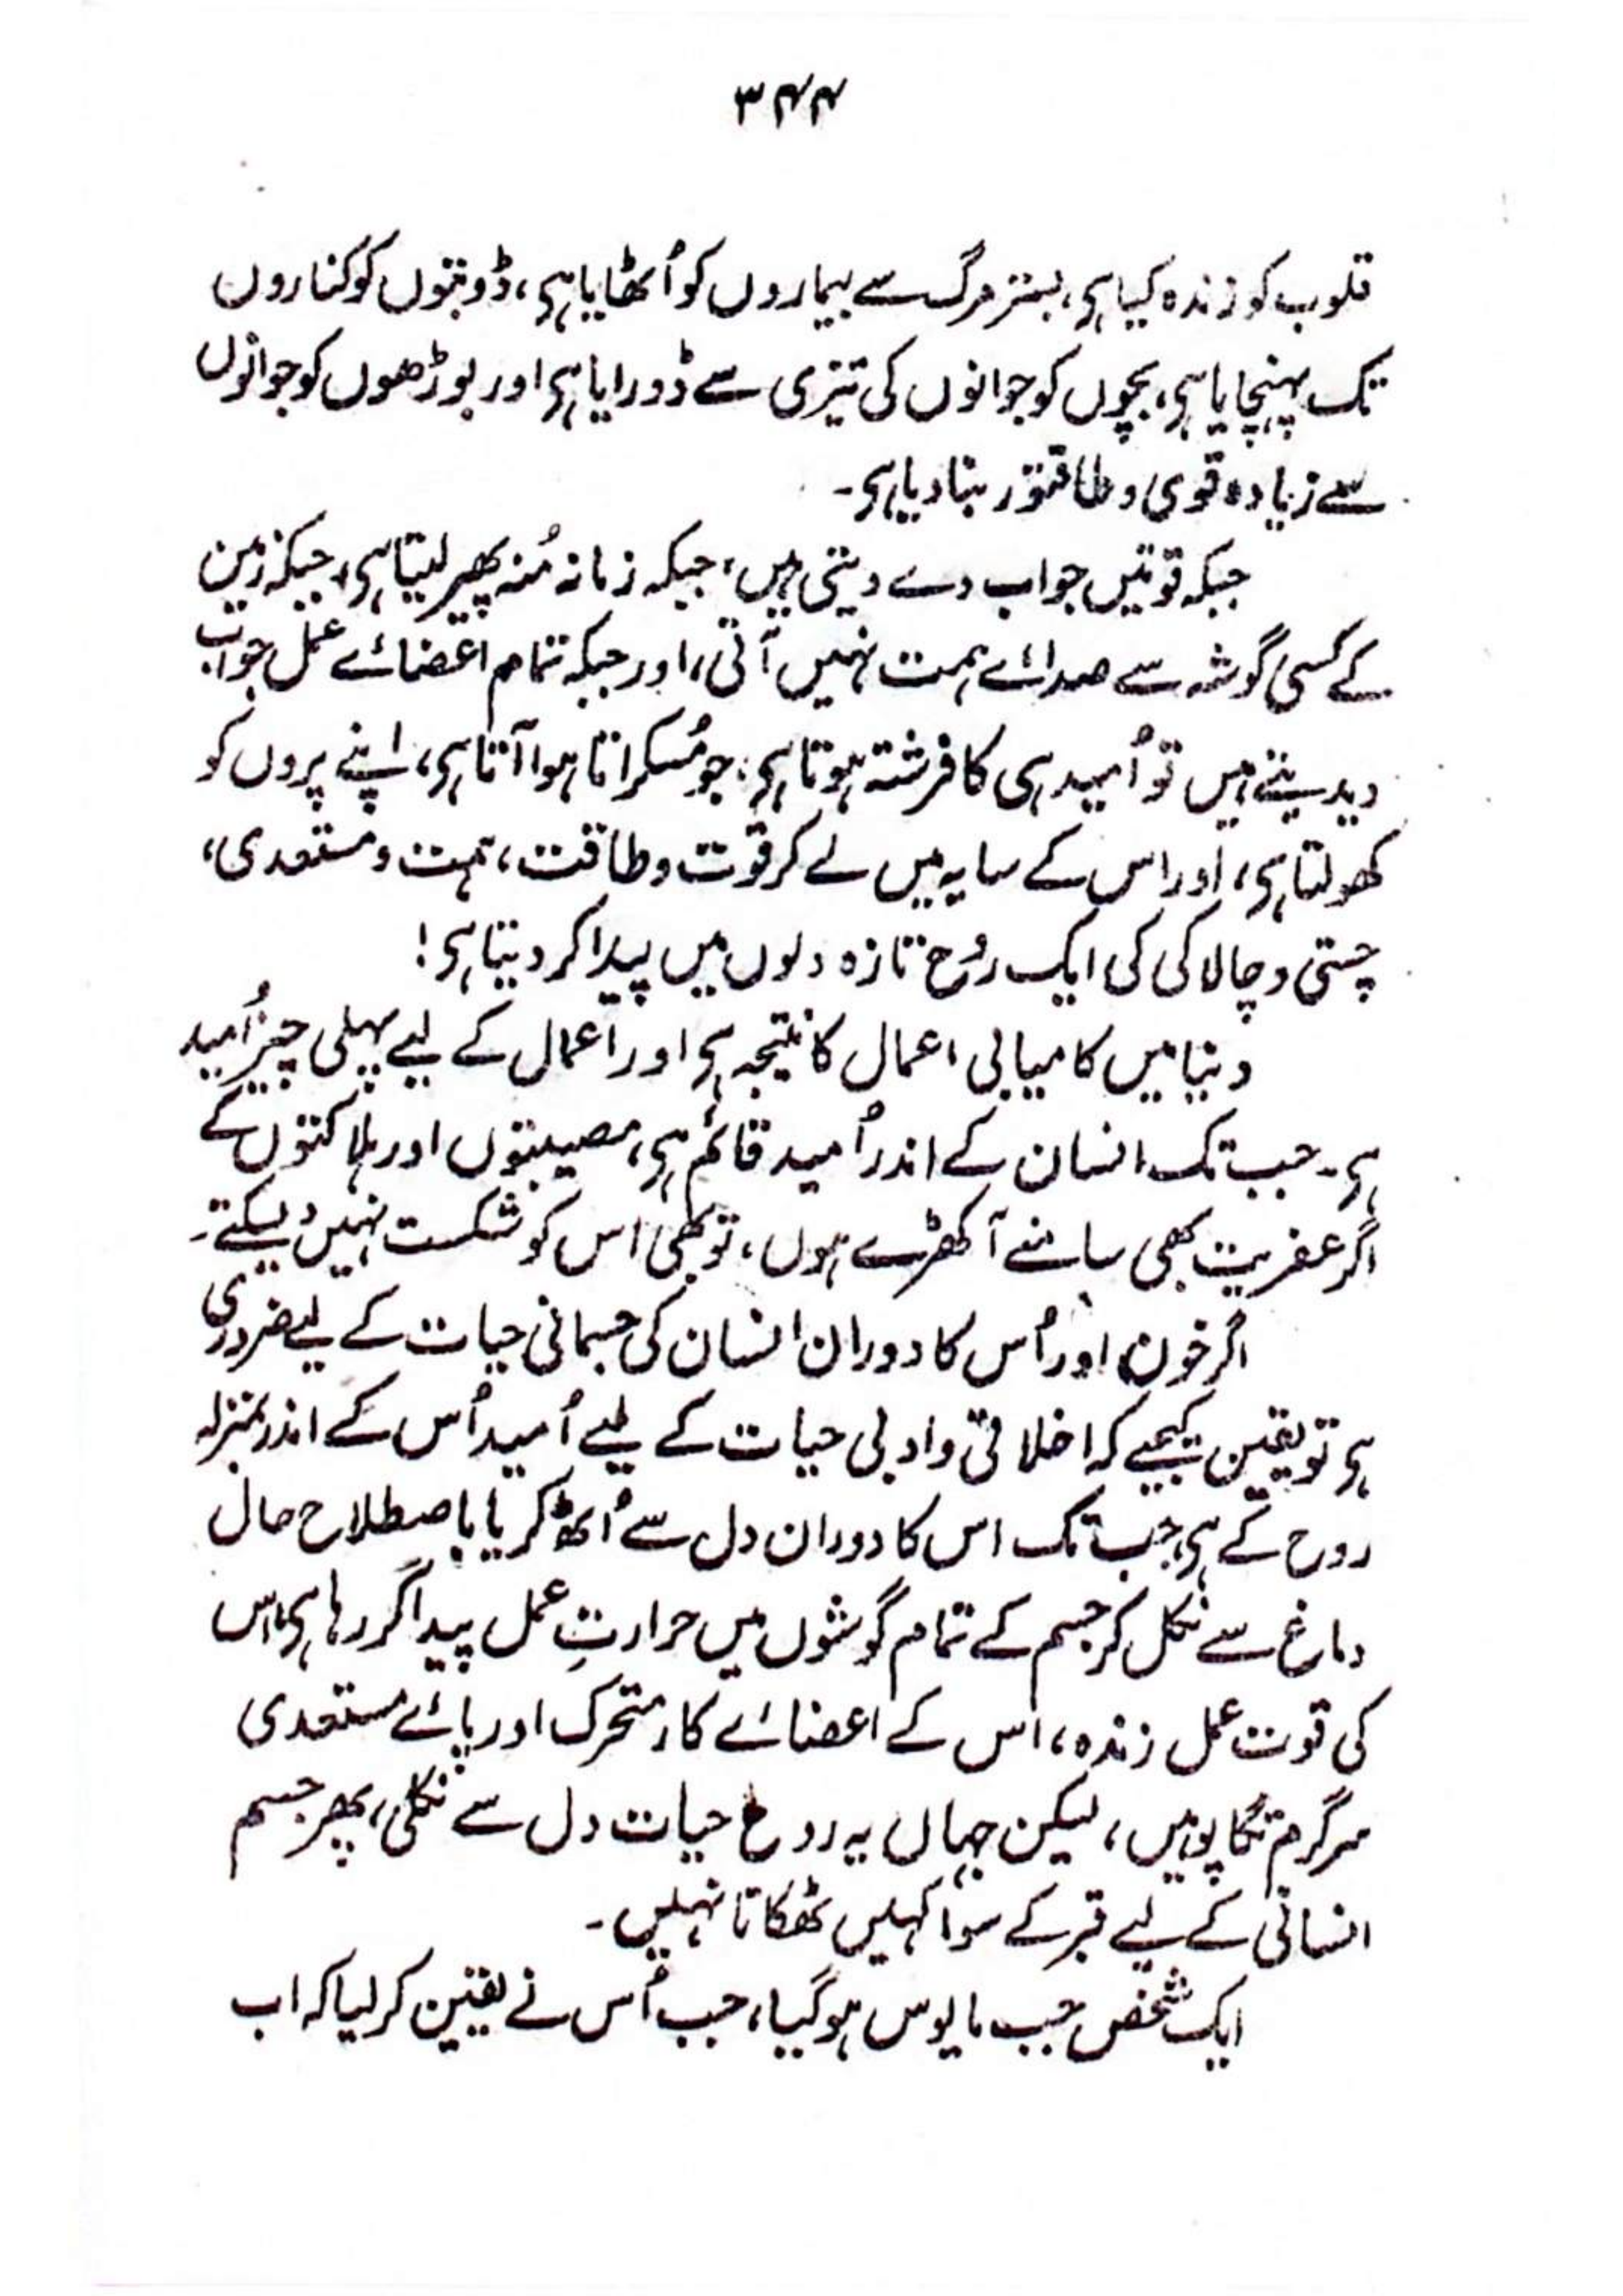 ۳۴۴
قلوب کو زندہ کیا ہی، بستر مرگ سے بیماروں کو اُٹھایا ہی، ڈوبتوں کو کناروں
تک پہنچایا ہی، بچوں کو جوانوں کی تیزی سے ڈورایا ہی اور بوڑھوں کو جوانوں
سے زیادہ قوی و طاقتور بنا دیا ہی۔
جبکہ قوتیں جواب دے دیتی ہیں، جبکہ زمانہ مُنہ پھیر لیتا ہی، جبکہ زمین
کے کسی گوشہ سے صدائے ہمت نہیں آتی، اور جبکہ تمام اعضائے عمل جواب
دیدیتے ہیں تو اُمید ہی کا فرشتہ ہوتا ہی، جو مُسکراتا ہوا آتا ہی، اپنے پروں کو
کھولتا ہی، اور اس کے سایہ میں لے کر قوت و طاقت، ہمت و مستعدی،
چستی و چالاکی کی ایک رُوح تازہ دلوں میں پیدا کر دیتا ہی!
دنیا میں کامیابی اعمال کا نتیجہ ہی اور اعمال کے لیے پہلی چیز اُمید
ہی۔ جب تک انسان کے اندر اُمید قائم ہی، مصیبتوں اور ہلاکتوں کے
اگر عفریت بھی سامنے آ کھڑے ہوں، تو بھی اس کو شکست نہیں دیسکتے۔
اگر خون اور اُس کا دوران انسان کی جسمانی حیات کے لیے ضروری
ہی تو یقین کیجیے کہ اخلاقی و ادبی حیات کے لیے اُمید اُس کے اندر بمنزلہ
روح کے ہی، جب تک اس کا دوران دل سے اُٹھ کر یا باصطلاح حال
دماغ سے نکل کر جسم کے تمام گوشوں میں حرارتِ عمل پیدا کر رہا ہی، اس
کی قوت عمل زندہ، اس کے اعضائے کار متحرک اور پائے مستعدی
سرگرم تگاپو ہیں، لیکن جہاں یہ روح حیات دل سے نکلی، پھر جسم
انسانی کے لیے قبر کے سوا کہیں ٹھکانا نہیں۔
ایک شخص جب مایوس ہو گیا، جب اُس نے یقین کر لیا کہ اب